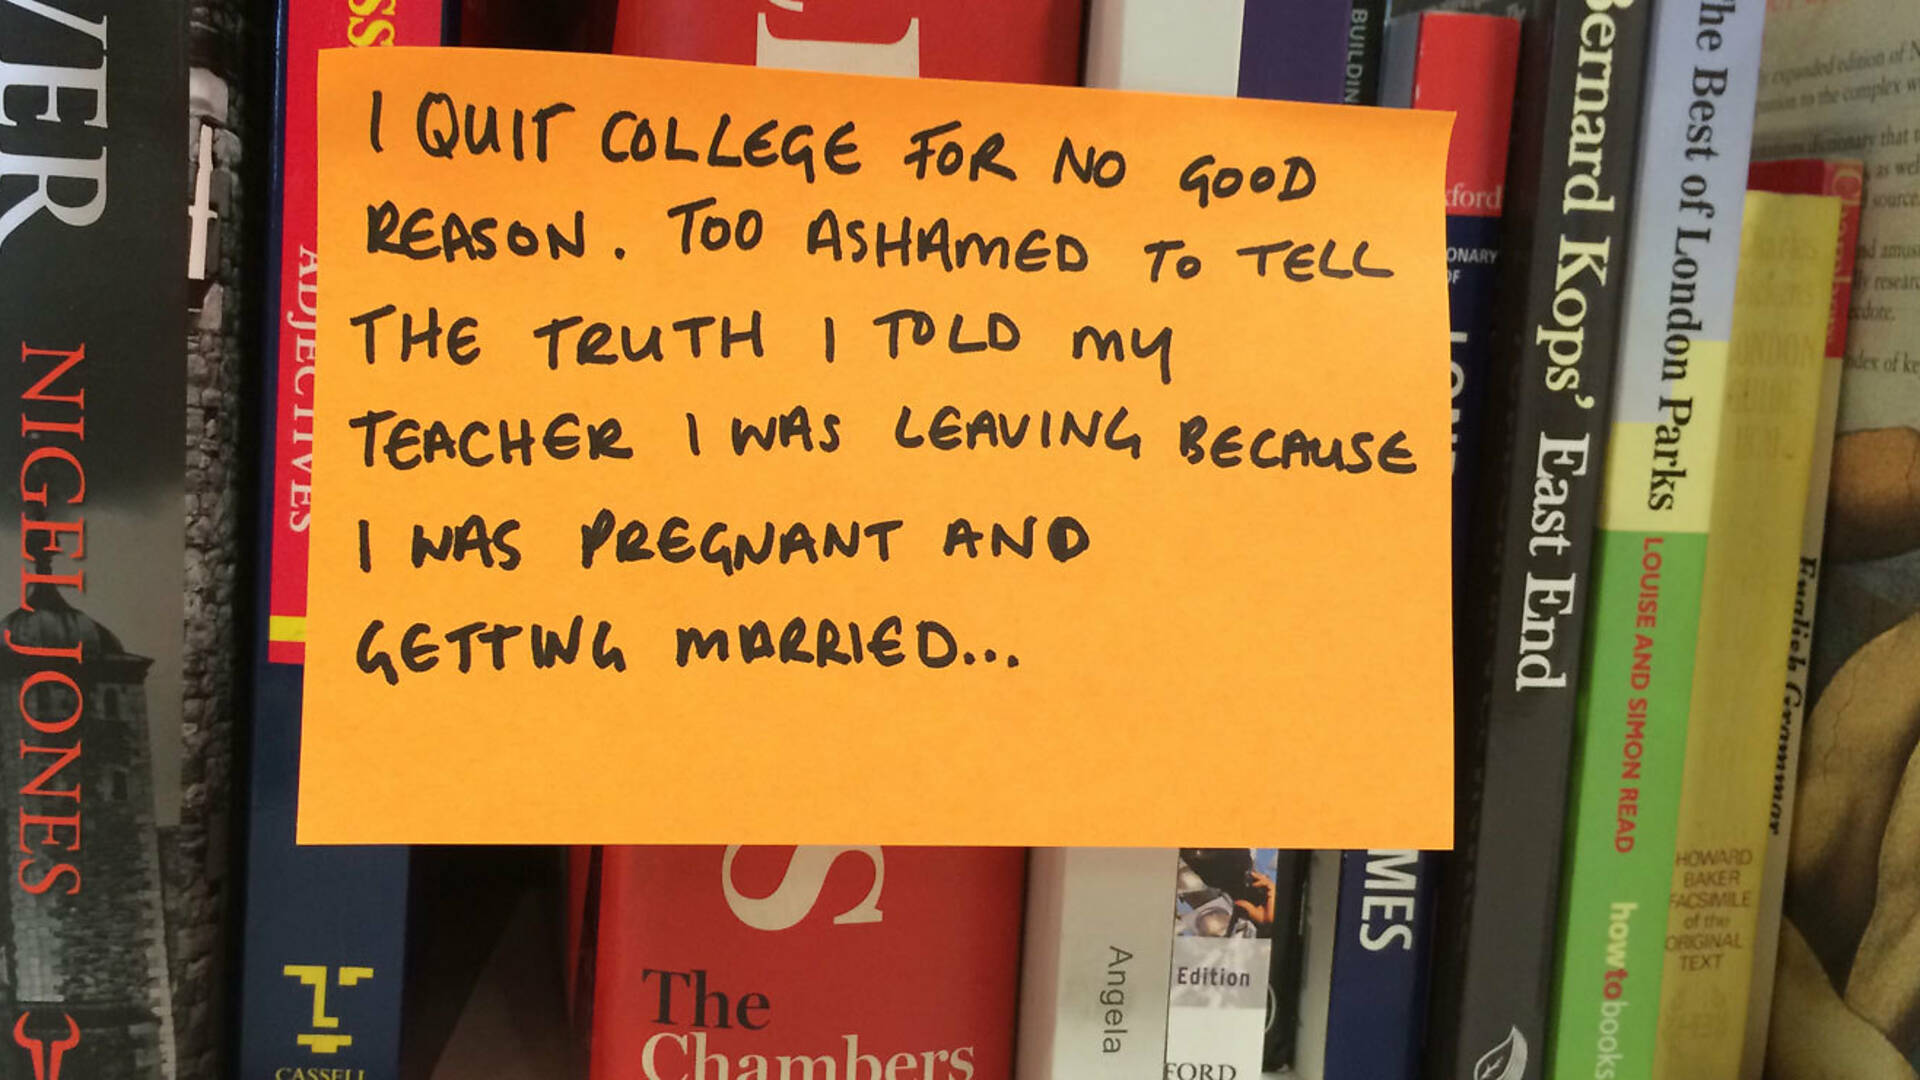 I QUIT COLLEGE FOR NO GOOD
REASON. TOO ASHAMED TO TELL
THE TRUTH I TOLD MY
TEACHER I WAS LEAVING BECAUSE
I WAS PREGNANT AND
GETTING MARRIED...
NIGEL JONES
ADJECTIVES
CASSELL
The
Chambers
Angela
Edition
BUILDIN
ONARY
OF
Bernard Kops' East End
The Best of London Parks
LOUISE AND SIMON READ
howtobooks
English Grammar
HOWARD
BAKER
FACSIMILE
of the
ORIGINAL
TEXT